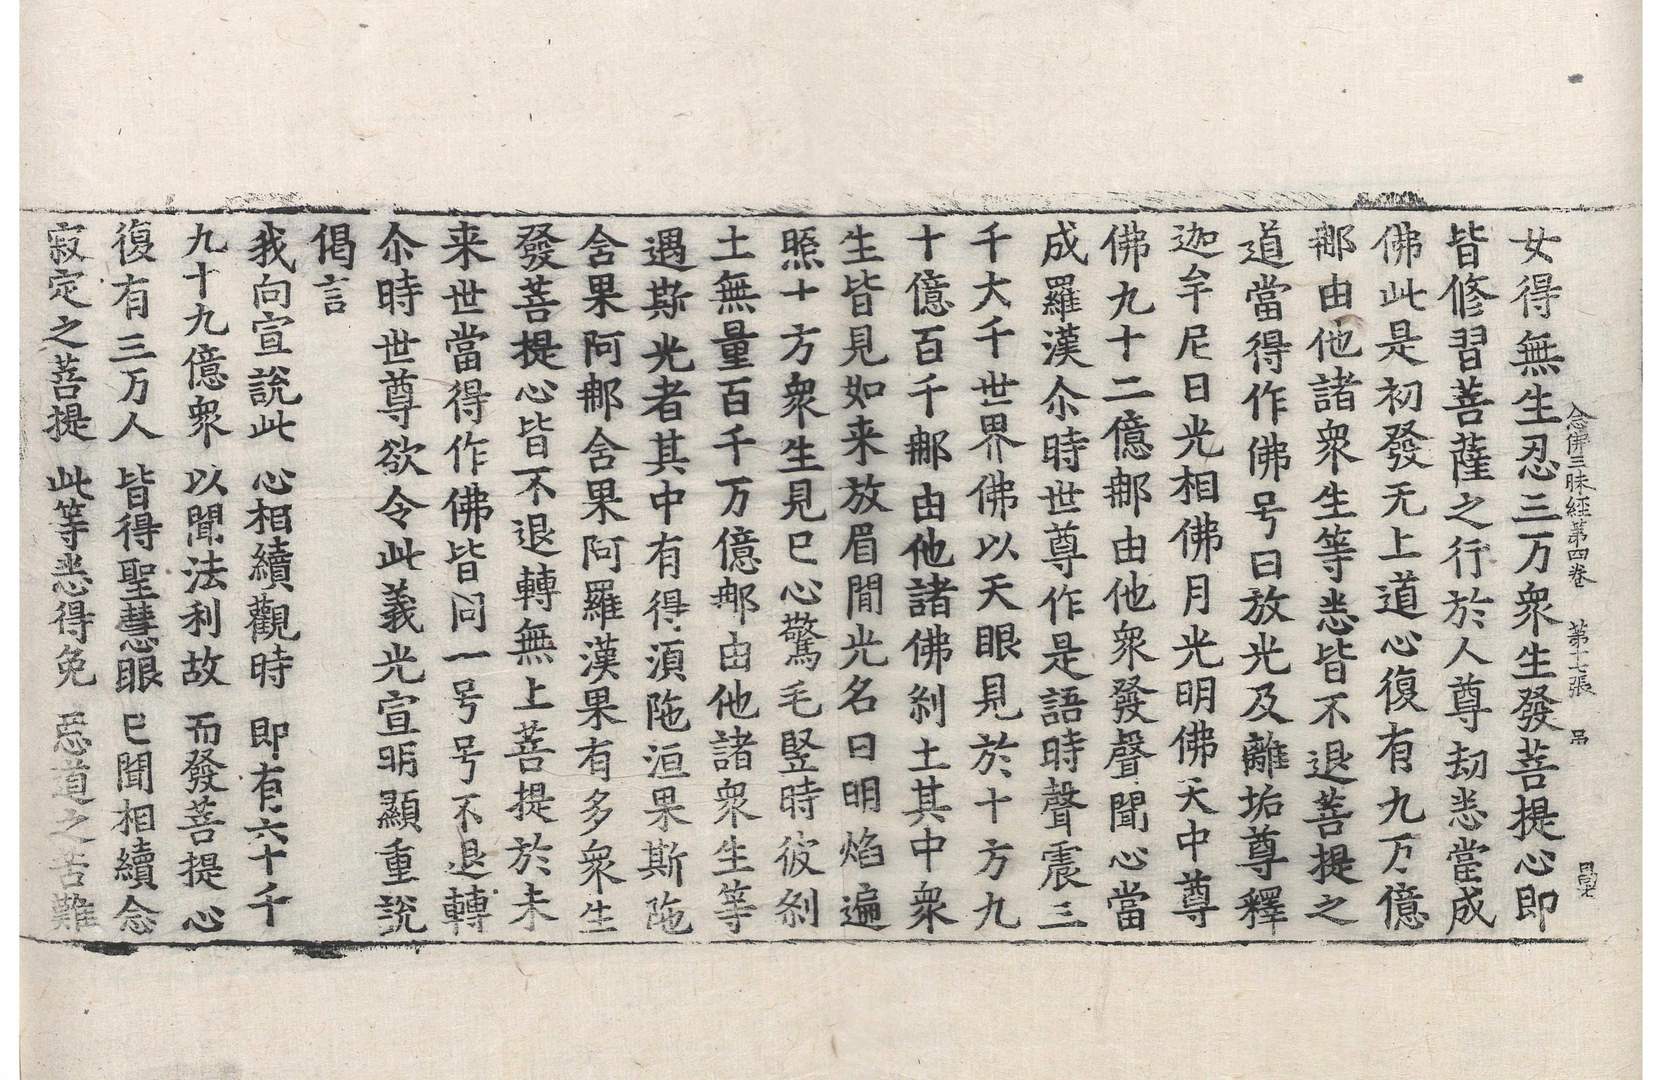 念佛三昧經第四卷　第十七張　吊
女得無生忍三万衆生發菩提心即
皆修習菩薩之行於人尊劫悉當成
佛此是初發无上道心復有九万億
郍由他諸衆生等悉皆不退菩提之
道當得作佛号曰放光及離垢尊釋
迦牟尼日光相佛月光明佛天中尊
佛九十二億郍由他衆發聲聞心當
成羅漢尒時世尊作是語時聲震三
千大千世界佛以天眼見於十方九
十億百千郍由他諸佛刹土其中衆
生皆見如来放眉間光名曰明焰遍
照十方衆生見已心驚毛竪時彼刹
土無量百千万億郍由他諸衆生等
遇斯光者其中有得湏陁洹果斯陁
含果阿郍含果阿羅漢果有多衆生
發菩提心皆不退轉無上菩提於未
来世當得作佛皆同一号号不退轉
尒時世尊欲令此義光宣明顯重說
偈言
我向宣說此　心相續觀時　即有六十千
九十九億衆　以聞法利故　而發菩提心
復有三万人　皆得聖慧眼　已聞相續念
寂定之菩提　此等悉得免　惡道之苦難